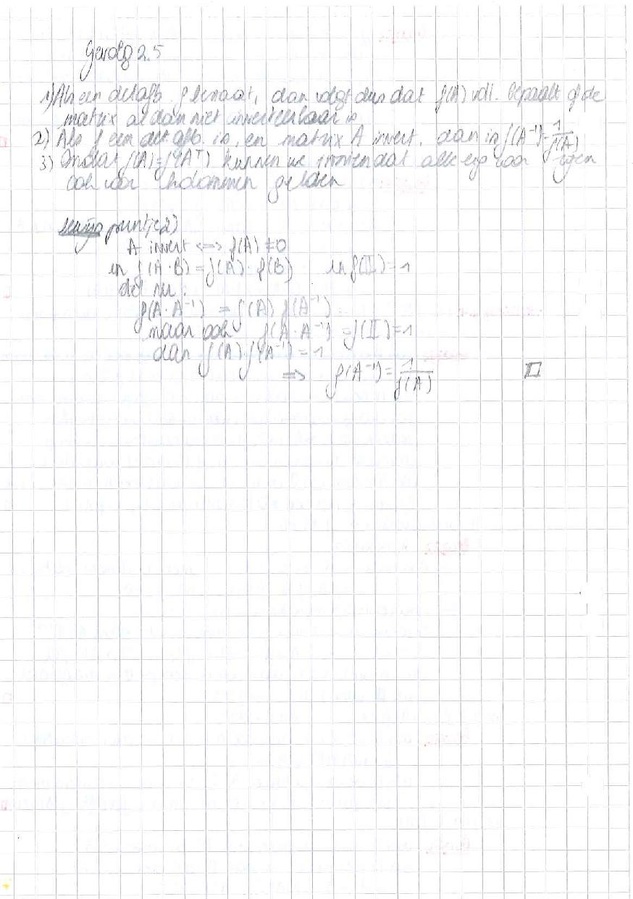 Gevolg 2.5
1) Als een det afb f bestaat, dan volgt dus dat f(A) voll. bepaalt of de
matrix al dan niet inverteerbaar is
2) Als f een det afb. is, en matrix A invert. dan is f(A⁻¹)=1/f(A)
3) Omdat f(A)=f(Aᵀ) kunnen we dat alle eig voor rijen
ook voor kolommen gelden
puntje 2)
A invert ⟺ f(A)≠0
en f(A·B)=f(A)·f(B) en f(I)=1
dit nu:
f(A·A⁻¹) = f(A) f(A⁻¹)
maar ook f(A·A⁻¹)=f(I)=1
dan f(A)·f(A⁻¹)=1
⟹ f(A⁻¹)=1/f(A) □